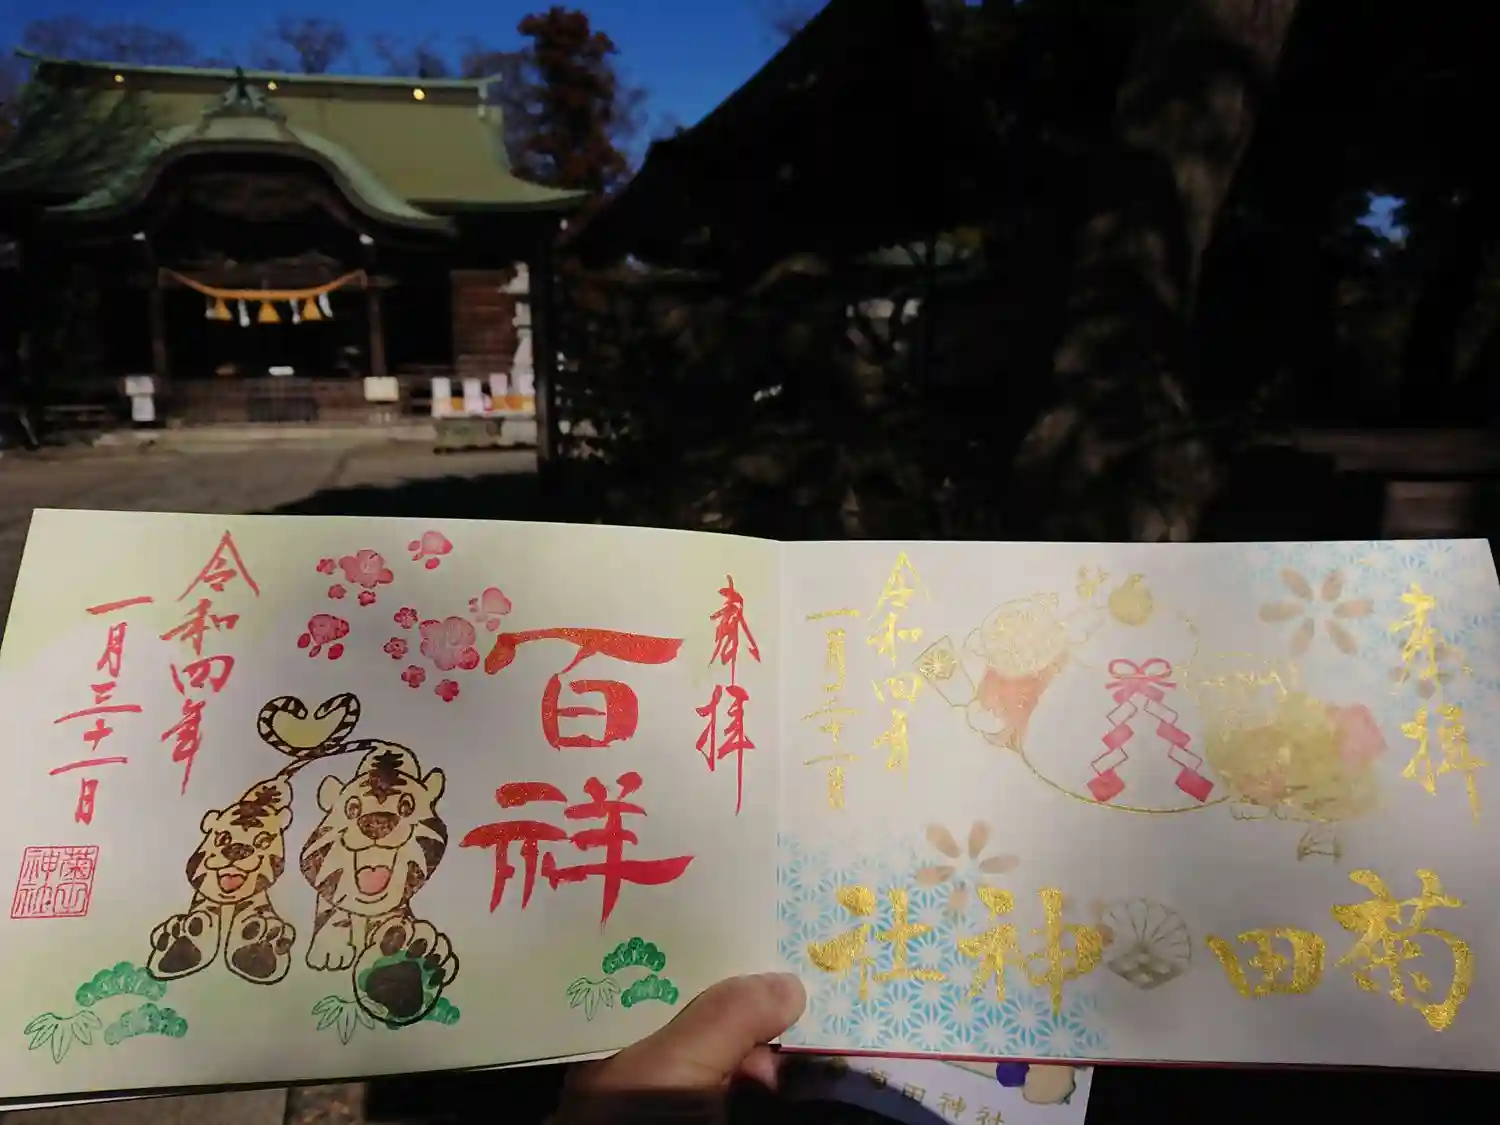 奉拝
百祥
令和四年
一月三十一日
菊田
神社
奉拝
菊田神社
令和四年
一月三十一日
菊田神社